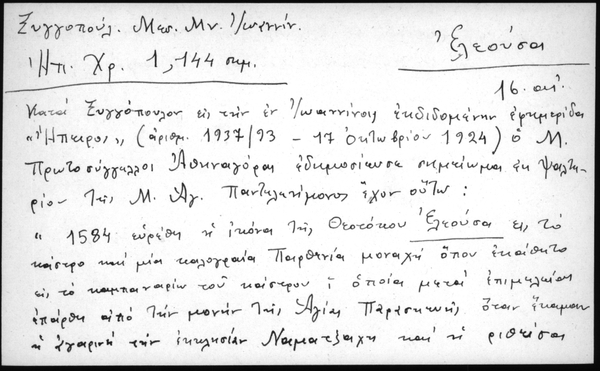 Ξυγγοπούλ. Μεσ. Μν. Ἰωαννίν.
Ἠπ. Χρ. 1, 144 σημ.
Ἐλεούσα
16. αἰ.
Κατὰ Ξυγγόπουλον εἰς τὴν ἐν Ἰωαννίνοις ἐκδιδομένην ἐφημερίδα
«Ἤπειρος» (ἀριθμ. 1937/93 – 17 Ὀκτωβρίου 1924) ὁ Μ.
Πρωτοσύγγελλος Ἀθηναγόρας ἐδημοσίευσε σημείωμα ἐκ Ψαλτη-
ρίου τῆς Μ. Ἁγ. Παντελεήμονος ἔχον οὕτω:
« 1584 εὑρέθη ἡ ἰκόνα τῆς Θεοτόκου Ἐλεούσα εἰς τὸ
κάστρο καὶ μία καλογραία Παρθενία μοναχὴ ὅπου ἐκάθητο
εἰς τὸ καμπαναρίον τοῦ κάστρου ἡ ὁποία μετὰ ἐπιμελείας
ἐπάρθη ἀπὸ τὴν μονὴν τῆς Ἁγίας Παρασκευῆς ὅταν ἔκαμαν
ἡ ἀγαρινοὶ τὴν ἐκκλησίαν Ναματζάχη καὶ ἡ ριθεῖσα